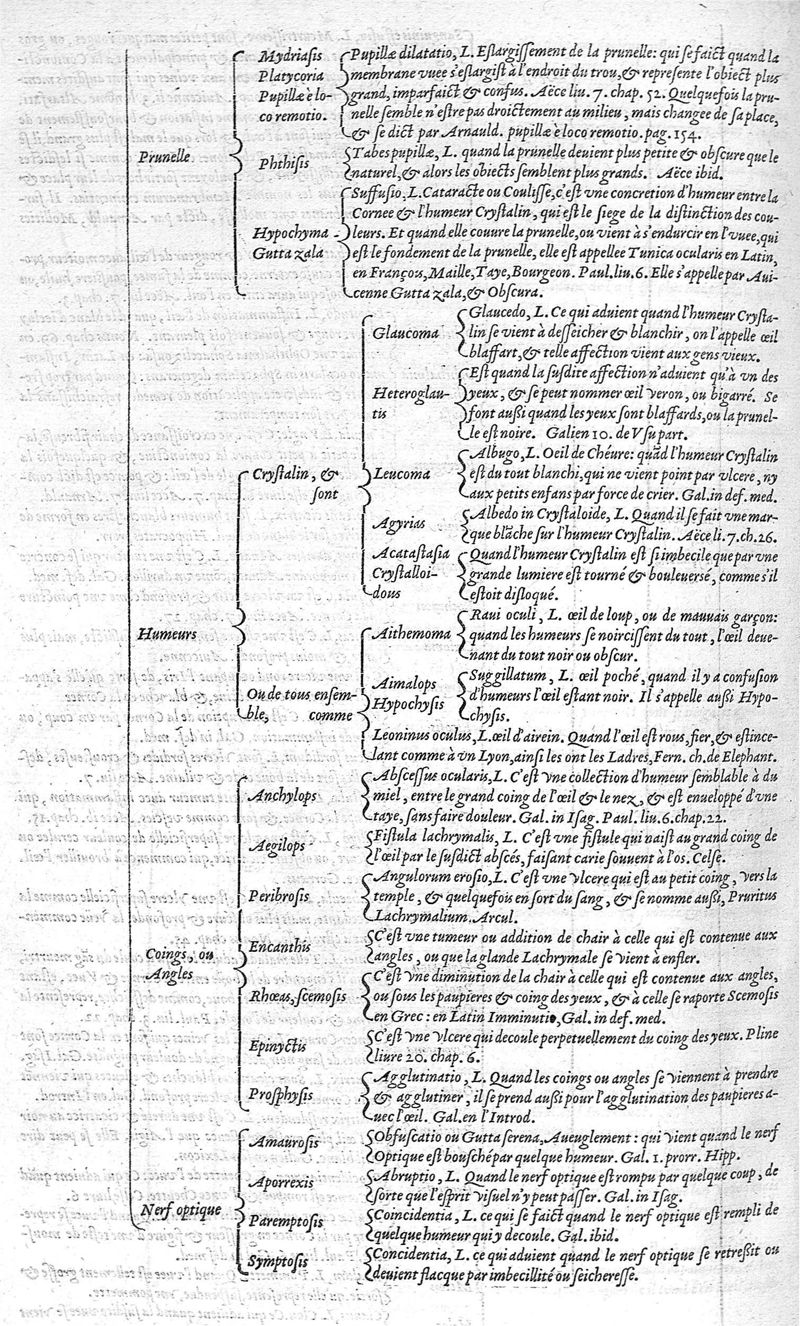 Prunelle
Mydriasis
Platycoria
Pupillæ è lo-
co remotio.
Pupillæ dilatatio, L. Eslargissement de la prunelle: qui se faict quand la
membrane vuee s'eslargist à l'endroit du trou, & represente l'obiect plus
grand, imparfaict & confus. Aëce liu. 7. chap. 52. Quelquefois la pru-
nelle semble n'estre pas droictement au milieu, mais changee de sa place,
& se dict par Arnauld. pupillæ è loco remotio. pag. 154.
Phthisis
Tabes pupillæ, L. quand la prunelle deuient plus petite & obscure que le
naturel, & alors les obiects semblent plus grands. Aëce ibid.
Hypochyma
Gutta zala
Suffusio, L. Cataracte ou Coulisse, c'est vne concretion d'humeur entre la
Cornee & l'humeur Crystalin, qui est le siege de la distinction des cou-
leurs. Et quand elle couure la prunelle, ou vient à s'endurcir en l'vuee, qui
est le fondement de la prunelle, elle est appellee Tunica ocularis en Latin,
en François, Maille, Taye, Bourgeon. Paul. liu. 6. Elle s'appelle par Aui-
cenne Gutta zala, & Obscura.
Humeurs
Crystalin, &
sont
Glaucoma
Glaucedo, L. Ce qui aduient quand l'humeur Crysta-
lin se vient à desseicher & blanchir, on l'appelle œil
blaffart, & telle affection vient aux gens vieux.
Heteroglau-
tis
Est quand la susdite affection n'aduient qu'à vn des
yeux, & se peut nommer œil veron, ou bigarré. Se
font aussi quand les yeux sont blaffards, ou la prunel-
le est noire. Galien 10. de Vsu part.
Leucoma
Albugo, L. Oeil de Chéure: quãd l'humeur Crystalin
est du tout blanchi, qui ne vient point par vlcere, ny
aux petits enfans par force de crier. Gal. in def. med.
Agyrias
Albedo in Crystaloide, L. Quand il se fait vne mar-
que blãche sur l'humeur Crystalin. Aëce li. 7. ch. 26.
Acatastasia
Crystalloi-
dous
Quand l'humeur Crystalin est si imbecile que par vne
grande lumiere est tourné & bouleuersé, comme s'il
estoit disloqué.
Ou de tous ensem-
ble, comme
Aithemoma
Raui oculi, L. œil de loup, ou de mauuais garçon:
quand les humeurs se noircissent du tout, l'œil deue-
nant du tout noir ou obscur.
Aimalops
Hypochysis
Suggillatum, L. œil poché, quand il y a confusion
d'humeurs l'œil estant noir. Il s'appelle aussi Hypo-
chysis.
Leoninus oculus, L. œil d'airein. Quand l'œil est rous, fier, & estince-
lant comme à vn Lyon, ainsi les ont les Ladres, Fern. ch. de Elephant.
Coings, ou
Angles
Anchylops
Abscessus ocularis, L. C'est vne collection d'humeur semblable à du
miel, entre le grand coing de l'œil & le nez, & est enueloppé d'vne
taye, sans faire douleur. Gal. in Isag. Paul. liu. 6. chap. 22.
Aegilops
Fistula lachrymalis, L. C'est vne fistule qui naist au grand coing de
l'œil par le susdict abscés, faisant carie souuent à l'os. Celse.
Peribrosis
Angulorum erosio, L. C'est vne vlcere qui est au petit coing, vers la
temple, & quelquefois en sort du sang, & se nomme aussi, Pruritus
Lachrymalium. Arcul.
Encanthis
C'est vne tumeur ou addition de chair à celle qui est contenue aux
angles, ou que la glande Lachrymale se vient à enfler.
Rhœas, scemosis
C'est vne diminution de la chair à celle qui est contenue aux angles,
ou sous les paupieres & coing des yeux, & à celle se raporte Scemosis
en Grec: en Latin Imminutio, Gal. in def. med.
Epinyctis
C'est vne vlcere qui decoule perpetuellement du coing des yeux. Pline
liure 20. chap. 6.
Prosphysis
Agglutinatio, L. Quand les coings ou angles se viennent à prendre
& agglutiner, il se prend aussi pour l'agglutination des paupieres a-
uec l'œil. Gal. en l'Introd.
Nerf optique
Amaurosis
Obfuscatio ou Gutta serena, Aueuglement: qui vient quand le nerf
Optique est bousché par quelque humeur. Gal. 1. prorr. Hipp.
Aporrexis
Abruptio, L. Quand le nerf optique est rompu par quelque coup, de
sorte que l'esprit visuel n'y peut passer. Gal. in Isag.
Paremptosis
Coincidentia, L. ce qui se faict quand le nerf optique est rempli de
quelque humeur qui y decoule. Gal. ibid.
Symptosis
Concidentia, L. ce qui aduient quand le nerf optique se retressit ou
deuient flacque par imbecillité ou seicheresse.